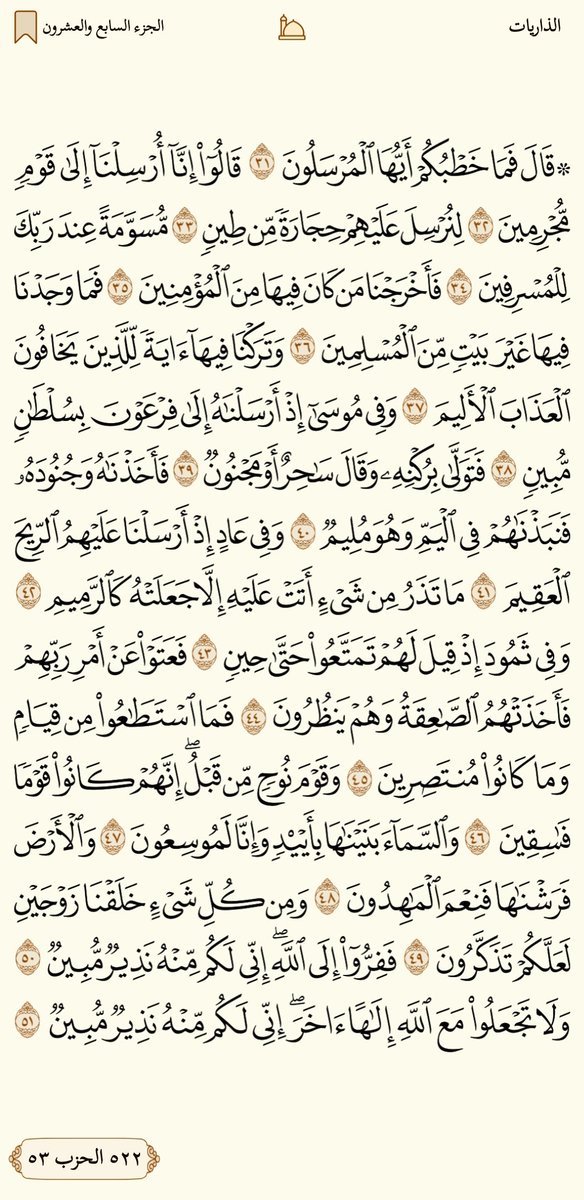 الذاريات
الجزء السابع والعشرون
* قَالَ فَمَا خَطْبُكُمْ أَيُّهَا ٱلْمُرْسَلُونَ ٣١ قَالُوٓا۟ إِنَّآ أُرْسِلْنَآ إِلَىٰ قَوْمٍ
مُّجْرِمِينَ ٣٢ لِنُرْسِلَ عَلَيْهِمْ حِجَارَةً مِّن طِينٍ ٣٣ مُّسَوَّمَةً عِندَ رَبِّكَ
لِلْمُسْرِفِينَ ٣٤ فَأَخْرَجْنَا مَن كَانَ فِيهَا مِنَ ٱلْمُؤْمِنِينَ ٣٥ فَمَا وَجَدْنَا
فِيهَا غَيْرَ بَيْتٍ مِّنَ ٱلْمُسْلِمِينَ ٣٦ وَتَرَكْنَا فِيهَآ ءَايَةً لِّلَّذِينَ يَخَافُونَ
ٱلْعَذَابَ ٱلْأَلِيمَ ٣٧ وَفِى مُوسَىٰٓ إِذْ أَرْسَلْنَٰهُ إِلَىٰ فِرْعَوْنَ بِسُلْطَٰنٍ
مُّبِينٍ ٣٨ فَتَوَلَّىٰ بِرُكْنِهِۦ وَقَالَ سَٰحِرٌ أَوْ مَجْنُونٌ ٣٩ فَأَخَذْنَٰهُ وَجُنُودَهُۥ
فَنَبَذْنَٰهُمْ فِى ٱلْيَمِّ وَهُوَ مُلِيمٌ ٤٠ وَفِى عَادٍ إِذْ أَرْسَلْنَا عَلَيْهِمُ ٱلرِّيحَ
ٱلْعَقِيمَ ٤١ مَا تَذَرُ مِن شَىْءٍ أَتَتْ عَلَيْهِ إِلَّا جَعَلَتْهُ كَٱلرَّمِيمِ ٤٢
وَفِى ثَمُودَ إِذْ قِيلَ لَهُمْ تَمَتَّعُوا۟ حَتَّىٰ حِينٍ ٤٣ فَعَتَوْا۟ عَنْ أَمْرِ رَبِّهِمْ
فَأَخَذَتْهُمُ ٱلصَّٰعِقَةُ وَهُمْ يَنظُرُونَ ٤٤ فَمَا ٱسْتَطَٰعُوا۟ مِن قِيَامٍ
وَمَا كَانُوا۟ مُنتَصِرِينَ ٤٥ وَقَوْمَ نُوحٍ مِّن قَبْلُ ۖ إِنَّهُمْ كَانُوا۟ قَوْمًا
فَٰسِقِينَ ٤٦ وَٱلسَّمَآءَ بَنَيْنَٰهَا بِأَيْي۟دٍ وَإِنَّا لَمُوسِعُونَ ٤٧ وَٱلْأَرْضَ
فَرَشْنَٰهَا فَنِعْمَ ٱلْمَٰهِدُونَ ٤٨ وَمِن كُلِّ شَىْءٍ خَلَقْنَا زَوْجَيْنِ
لَعَلَّكُمْ تَذَكَّرُونَ ٤٩ فَفِرُّوٓا۟ إِلَى ٱللَّهِ ۖ إِنِّى لَكُم مِّنْهُ نَذِيرٌ مُّبِينٌ ٥٠
وَلَا تَجْعَلُوا۟ مَعَ ٱللَّهِ إِلَٰهًا ءَاخَرَ ۖ إِنِّى لَكُم مِّنْهُ نَذِيرٌ مُّبِينٌ ٥١
٥٢٢ الحزب ٥٣